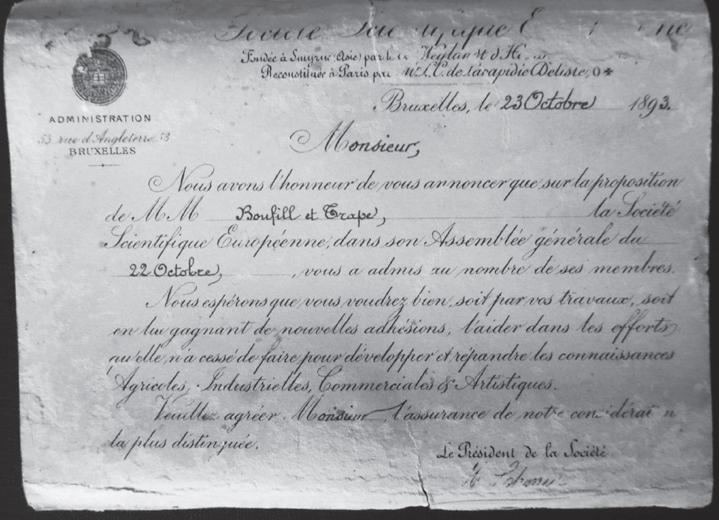 Fondée à Smyrne (Asie) par le
Reconstituée à Paris par de Larapidie Delisle, O*
Bruxelles, le 23 Octobre 1893.
ADMINISTRATION
53 rue d'Angleterre 53
BRUXELLES
Monsieur,
Nous avons l'honneur de vous annoncer que sur la proposition
de MM Boufill et Trape, la Société
Scientifique Européenne, dans son Assemblée générale du
22 Octobre, vous a admis au nombre de ses membres.
Nous espérons que vous voudrez bien, soit par vos travaux, soit
en lui gagnant de nouvelles adhésions, l'aider dans les efforts
qu'elle n'a cessé de faire pour développer et répandre les connaissances
Agricoles, Industrielles, Commerciales & Artistiques.
Veuillez agréer Monsieur, l'assurance de notre
la plus distinguée.
Le Président de la Société